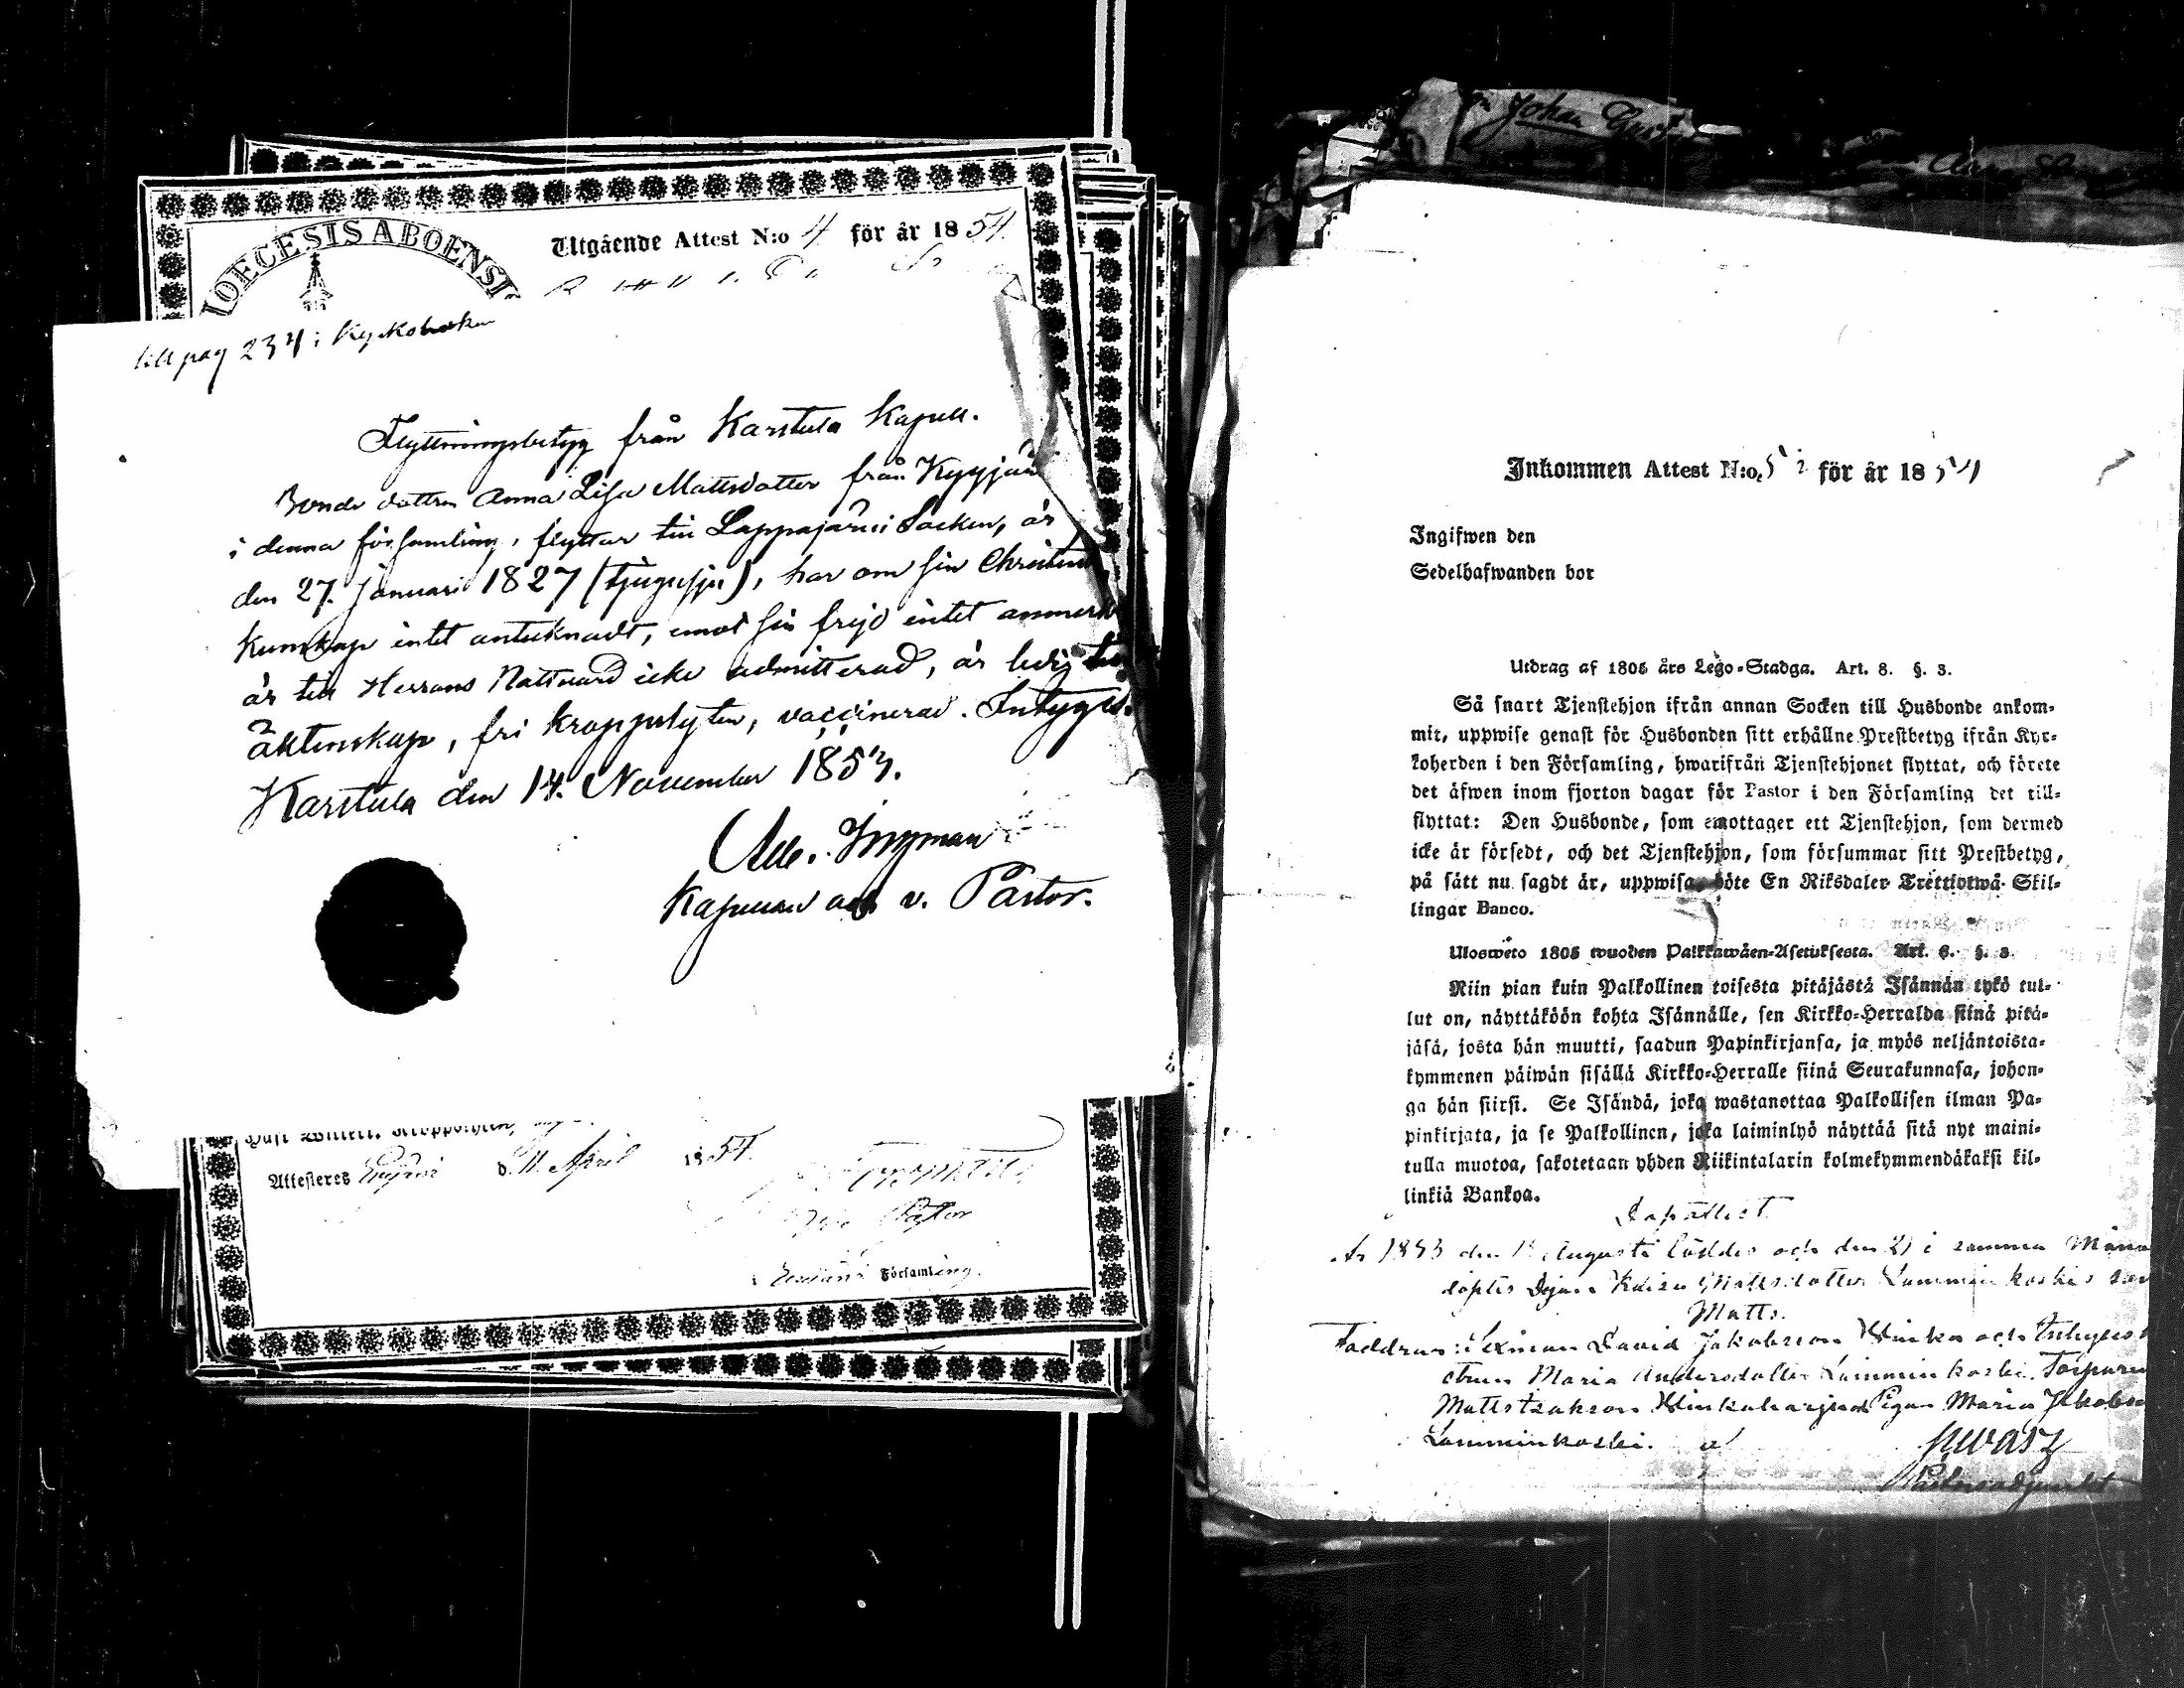 DIOECESIS ABOENSIS
Utgående Attest N:o 4 för år 1854.
till pag 234 i Kyrkoboken
Flyttningsbetyg från Karstula Kapell.
Bonde dottren Anna Lisa Mattsdotter från Kyyjärvi
i denna församling, flyttar till Lappajärvi Socken, är
den 27. Januari 1827 (tjugusju), har om sin Christendoms
kunskap intet antecknadt, emot sin frejd intet anmerkt
är till Herrans Nattvard icke admitterad, är ledig till
äktenskap, fri kroppslyten, vaccinerad. Intygas.
Karstula den 14. November 1853.
Ad. Ingman
Kapellan och v. Pastor.
Attesteres d. 11 April 1854.
Pastor
i Församling.
Johan
Inkommen Attest N:o 52 för år 1854
Ingifwen den
Sedelhafwanden bor
Utdrag af 1805 års Lego-Stadga. Art. 8. §. 3.
Så snart Tjenstehjon ifrån annan Socken till Husbonde ankom-
mit, uppwise genast för Husbonden sitt erhållne Prestbetyg ifrån Kyr-
koherden i den Församling, hwarifrån Tjenstehjonet flyttat, och förete
det äfwen inom fjorton dagar för Pastor i den Församling det till-
flyttat: Den Husbonde, som emottager ett Tjenstehjon, som dermed
icke är försedt, och det Tjenstehjon, som försummar sitt Prestbetyg,
på sätt nu sagdt är, uppwisa, böte En Riksdaler Trettiotwå Skil-
lingar Banco.
Uloswéto 1805 wuoden Palkkawäen-Asetuksesta. Art. 8. §. 3.
Niin pian kuin Palkollinen toisesta pitäjästä Isännän tykö tul-
lut on, näyttäköön kohta Isännälle, sen Kirkko-Herralda siinä pitä-
jäsä, josta hän muutti, saadun Papinkirjansa, ja myös neljäntoista-
kymmenen päiwän sisällä Kirkko-Herralle siinä Seurakunnasa, johon-
ga hän siirsi. Se Isändä, joka wastanottaa Palkollisen ilman Pa-
pinkirjata, ja se Palkollinen, joka laiminlyö näyttää sitä nyt maini-
tulla muotoa, sakotetaan yhden Riikintalarin kolmekymmendäkaksi kil-
linkiä Bankoa.
Dopattest.
År 1853 den Augusti föddes och den 21 i samma Måna
döptes Pigan Kaisa Mattsdotter Lamminkoskis son
Matts.
Faddrar: Sexman David Jakobsson och
Maria Andersdotter Lamminkoski.
Matts Isaksson Pigan Maria Jakobs
Lamminkoski.
Pastorsadjunkt